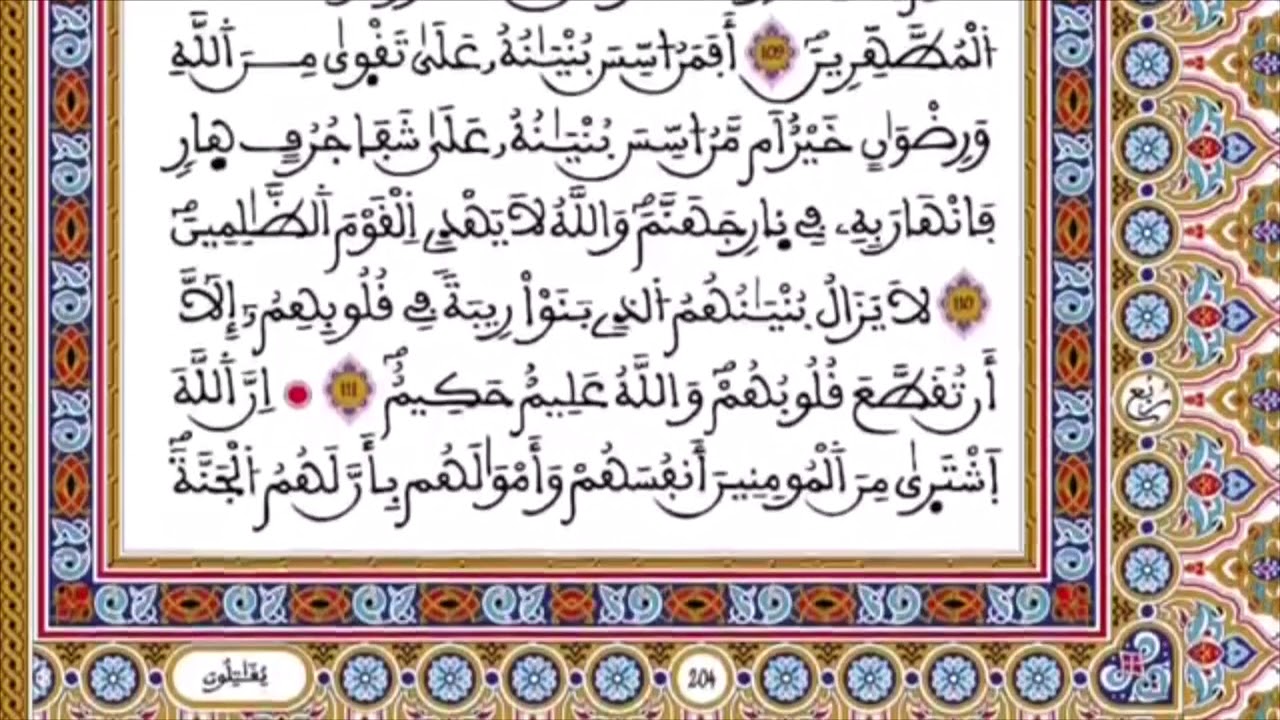 اَ۬لْمُطَّهِّرِينَۖ 109 أَفَمَنُ ا۟سِّسَ بُنْيَٰنُهُۥ عَلَىٰ تَقْو۪ىٰ مِنَ اَ۬للَّهِ
وَرِضْوَٰنٍ خَيْرٌ اَم مَّنُ ا۟سِّسَ بُنْيَٰنُهُۥ عَلَىٰ شَفَا جُرُفٍ ه۪ارٖ
فَانْهَارَ بِهِۦ فِے ن۪ارِ جَهَنَّمَۖ وَاللَّهُ لَا يَهْدِے اِ۬لْقَوْمَ اَ۬لظَّٰلِمِينَۖ
110 لَا يَزَالُ بُنْيَٰنُهُمُ اُ۬لذِے بَنَوْاْ رِيبَةٗ فِے قُلُوبِهِمُۥٓ إِلَّآ
أَن تُقَطَّعَ قُلُوبُهُمْۖ وَاللَّهُ عَلِيمٌ حَكِيمٌۖ 111 اِنَّ اَ۬للَّهَ
اَ۪شْتَر۪ىٰ مِنَ اَ۬لْمُومِنِينَ أَنفُسَهُمْ وَأَمْوَٰلَهُم بِأَنَّ لَهُمُ اُ۬لْجَنَّةَۖ
ربع
يُقَٰتِلُونَ
204